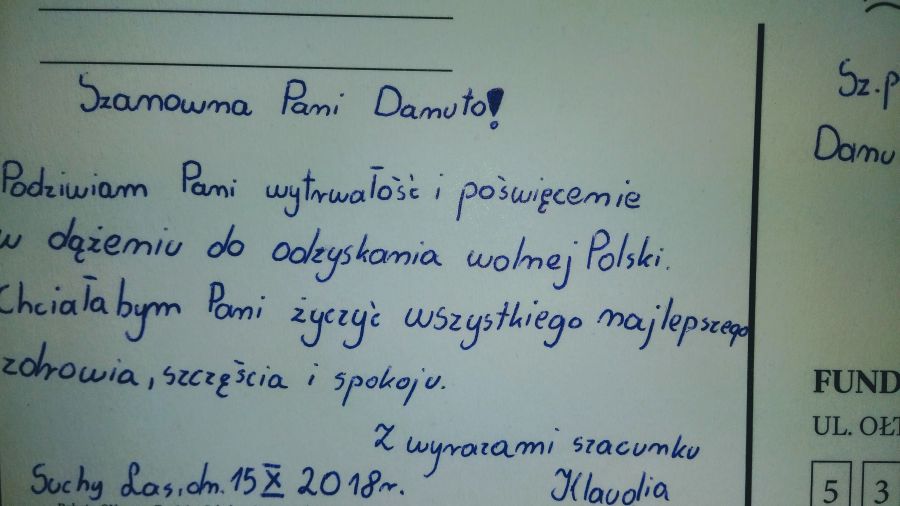 Szanowna Pani Danuto!
Podziwiam Pani wytrwałość i poświęcenie
w dążeniu do odzyskania wolnej Polski.
Chciałabym Pani życzyć wszystkiego najlepszego
zdrowia, szczęścia i spokoju.
Z wyrazami szacunku
Suchy Las, dn. 15 X 2018r.
Klaudia
Sz.p
Danu
FUND
UL. OŁT
5 3